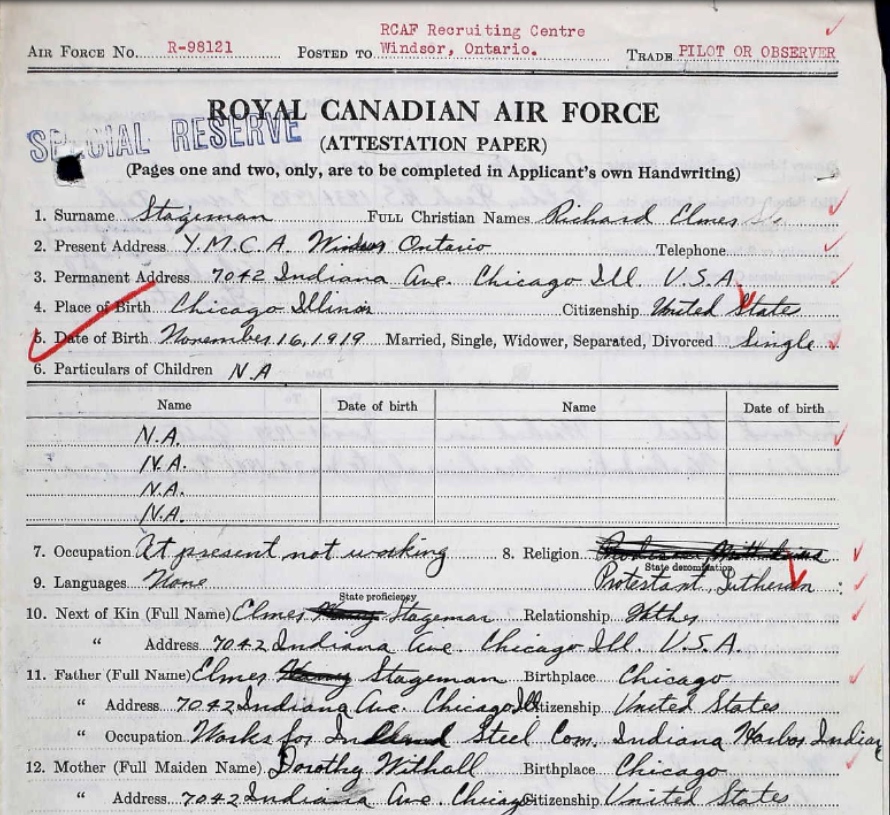 RCAF Recruiting Centre
AIR FORCE NO. R-98121 POSTED TO Windsor, Ontario. TRADE PILOT OR OBSERVER
ROYAL CANADIAN AIR FORCE
SPECIAL RESERVE
(ATTESTATION PAPER)
(Pages one and two, only, are to be completed in Applicant's own Handwriting)
1. Surname Stageman FULL Christian Names Richard Elmes
2. Present Address Y.M.C.A. Windsor Ontario Telephone
3. Permanent Address 7042 Indiana Ave. Chicago Ill. U.S.A.
4. Place of Birth Chicago Illinois Citizenship United States
5. Date of Birth November 16, 1919 Married, Single, Widower, Separated, Divorced Single
6. Particulars of Children N.A
Name Date of birth Name Date of birth
N.A.
N.A.
N.A.
N.A.
7. Occupation At present not working 8. Religion
State denomination
9. Languages None Protestant, Lutheran
State proficiency
10. Next of Kin (Full Name) Elmes Stageman Relationship Father
" Address 7042 Indiana Ave. Chicago Ill. U.S.A.
11. Father (Full Name) Elmes Stageman Birthplace Chicago
" Address 7042 Indiana Ave Chicago Ill Citizenship United States
" Occupation Works for Inland Steel Com. Indiana Harbor Indiana
12. Mother (Full Maiden Name) Dorothy Withall Birthplace Chicago
" Address 7042 Indiana Ave. Chicago Citizenship United States